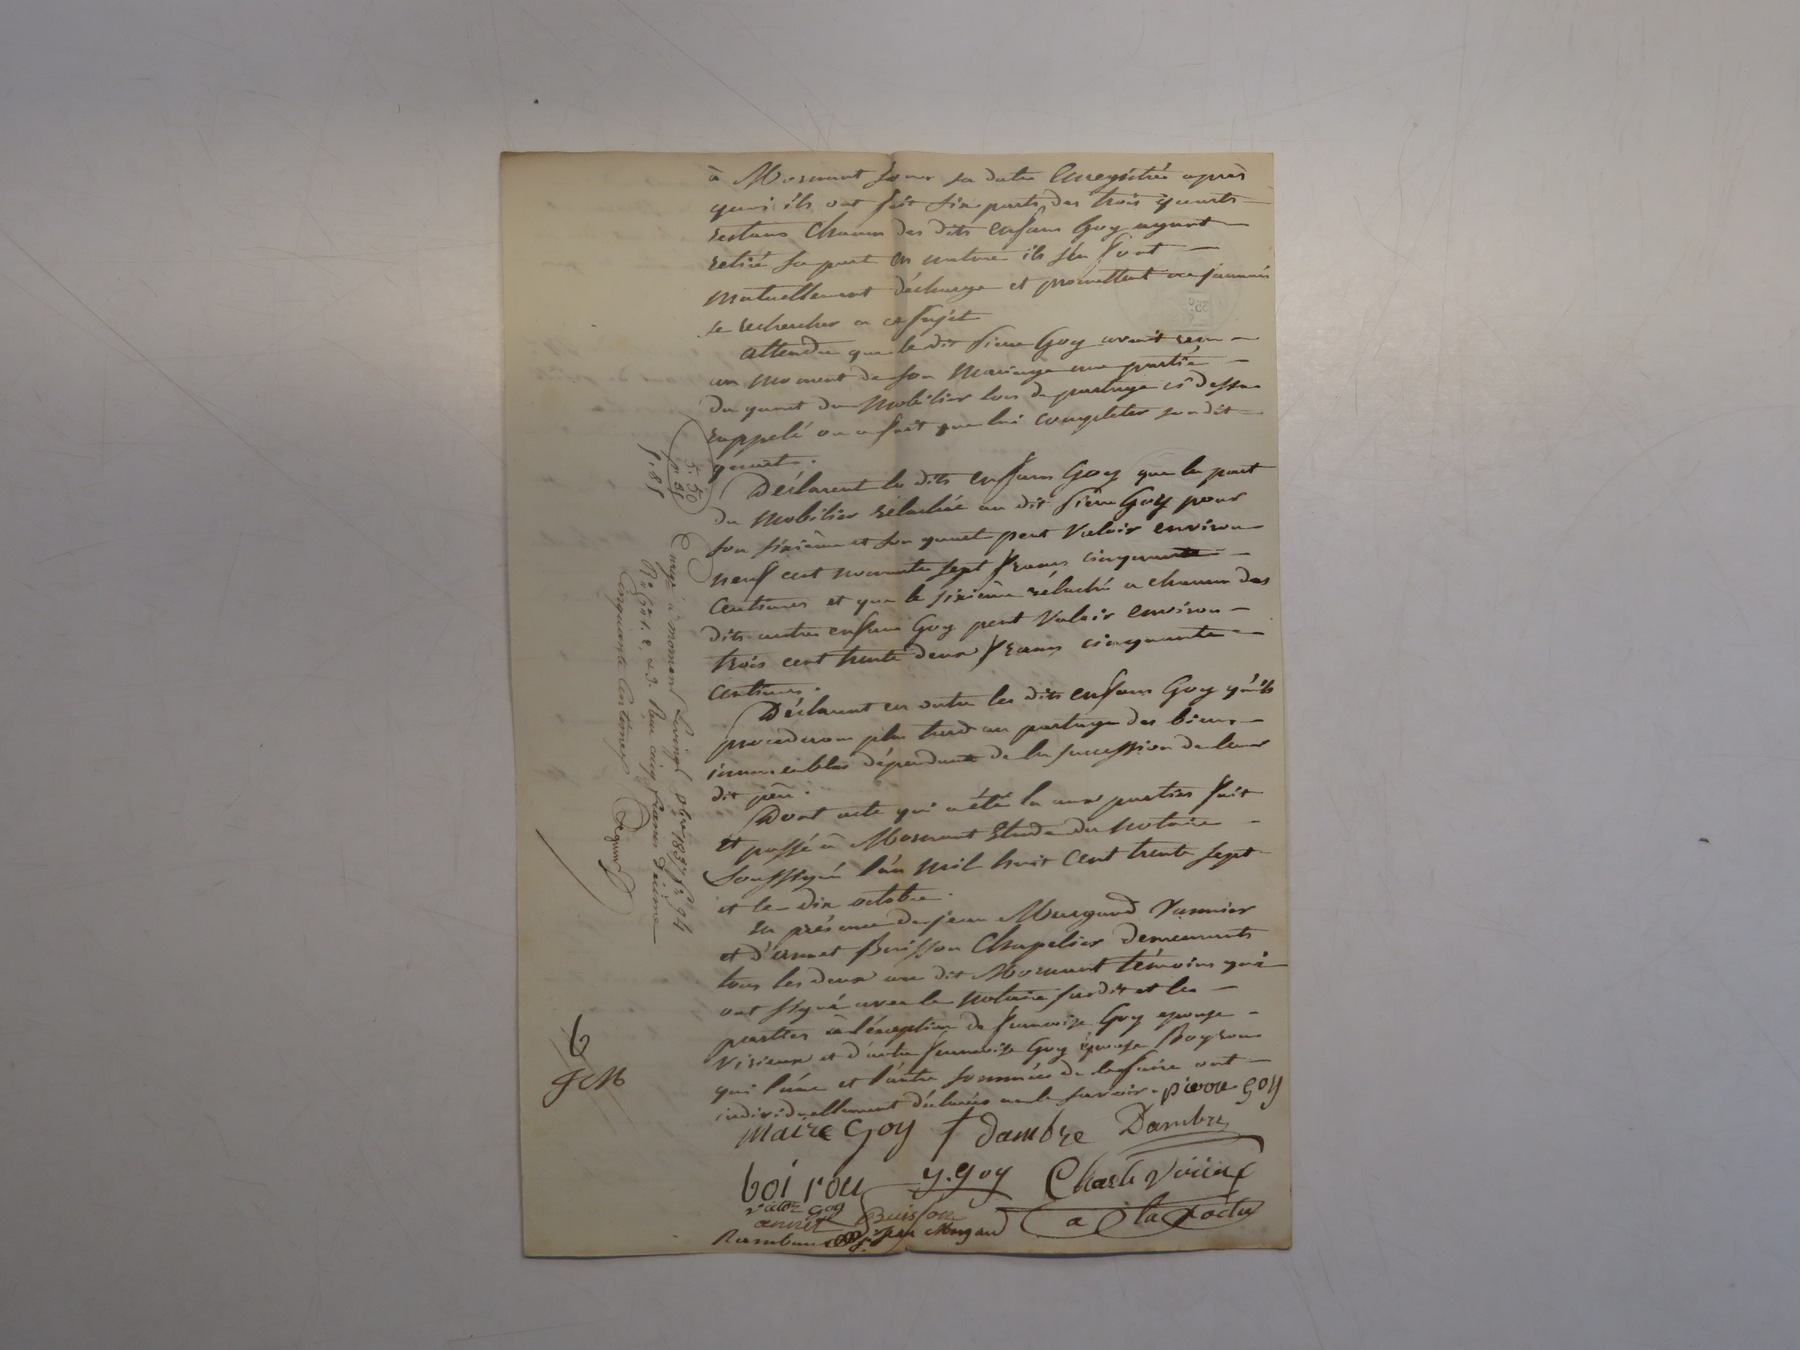 à Mornant sous sa date Enregistrée après
quoi ils ont fait six parts des trois quarts
restans Chacun des dits enfans Goy ayant
retiré sa part en nature ils s'en font
mutuellement décharge et promettent ne jamais
se rechercher à ce sujet
attendu que le dit Pierre Goy avait reçu
au moment de son Mariage une partie
du quart du Mobilier lors du partage ci dessus
rappelé on a fait que lui completer son dit
quart.
Déclarent les dits enfans Goy que la part
du Mobilier relachée au dit Pierre Goy pour
son sixième et son quart peut Valoir environ
neuf cent nonante sept francs cinquante
Centimes et que le sixième rélaché a chacun des
dits autres enfans Goy peut Valoir environ
trois cent trente deux francs cinquante
Centimes.
Déclarent en outre les dits enfans Goy qu'ils
procederont plus tard au partage des biens
immeubles dépendants de la succession de leur
dit père.
Dont acte qui a été lu aux parties fait
et passé à Mornant Etude du notaire
soussigné l'an mil huit cent trente sept
et le dix octobre.
En présence de jean Murgard Vannier
et d'annet Buisson Chapelier demeurants
tous les deux au dit Mornant témoins qui
ont signé avec le notaire susdit et les
parties à l'éxception de francoise Goy epouse
Virieux et d'autre francoise Goy épouse Boyron
qui l'une et l'autre sommées de le faire ont
individuellement déclarées ne le savoir. pierre goy
Maire Goy f dambre Dambre
boirou y. goy Charle Virieux
victor goy
annet Buisson a la Factu
Rambaud jean Murgard
5.50
0.55
Enregé à mornant le vingt 8bre 1837 fo 94
Ro Co 1. 2. et 3. Reçu cinq francs Décime
Cinquante Centimes
6